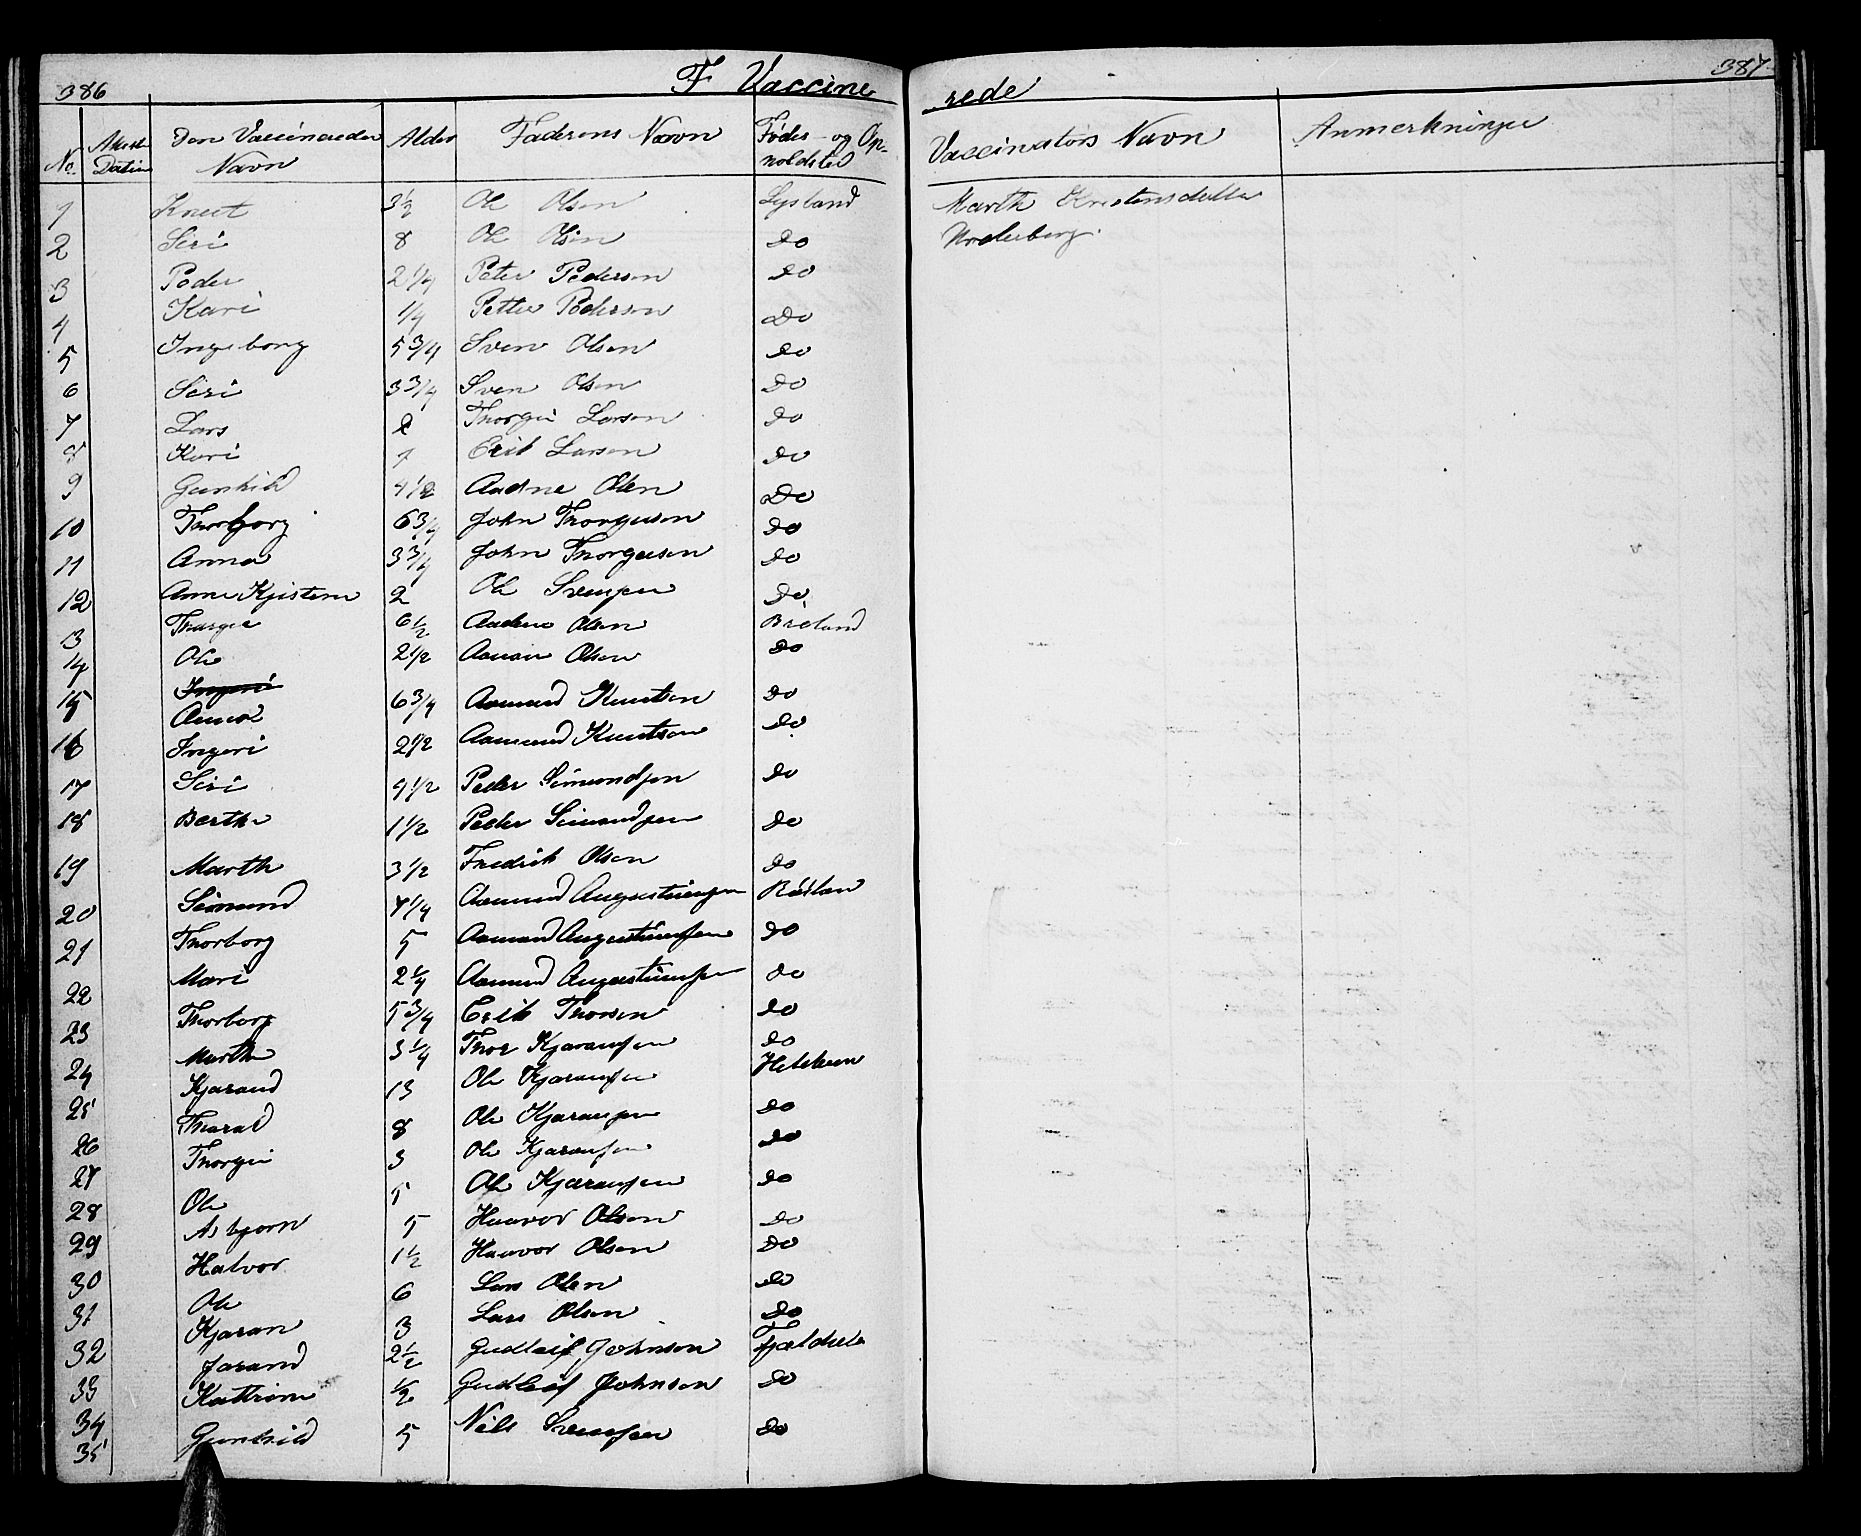 386 F Vaccine rede 387
No. Attest Datum Den Vaccineredes Navn Alder Faderens Navn Føde- og Opholdsted Vaccinatørs Navn Anmerkninger
1 Knut 3½ Ole Olsen Lysland Marth Kristensdatter
2 Siri 8 Ole Olsen do
3 Peder 2 1/4 Peter Pedersen do
4 Kari 1/4 Petter Pedersen Do
5 Ingeborg 5 3/4 Sven Olsen do
6 Siri 3 3/4 Sven Olsen do
7 Lars 2 Thorgei Larsen do
8 Kari 1 Erik Larsen do
9 Gunhild 4 1/2 Aadne Olsen Do
10 Thorborg 6 3/4 John Thorgeisen do
11 Anna 3 3/4 John Thorgeisen do
12 Anne Kjistine 2 Ole Svensen do
13 Thorgei 6 ½ Aadne Olsen Breland
14 Ole 2 1/2 Aanon Olsen do
15 Ingeri
Anne 6 3/4 Aamund Knutsen do
16 Ingeri 2 1/2 Aamund Knutsen do
17 Siri 4 1/2 Peder Simundsen do
18 Berthe 1 1/2 Peder Simundsen do
19 Marth 3 1/2 Fredrik Olsen do
20 Simund 7 1/4 Aamund Augustinusen
21 Thorborg 5 Aamund Augustinusen do
22 Mari 2 1/4 Aamund Augustinusen do
23 Thorborg 5 3/4 Erik Thorsen do
24 Marthe 3 1/4 Thor Kjaransen do
25 Kjarand 13 Ole Kjaransen
26 Tharald 8 Ole Kjaransen do
27 Thorgei 3 Ole Kjaransen do
28 Ole Ole Kjaransen do
29 Asbjørn 5 Haavor Olsen do
30 Halvor 1 ½ Haavor Olsen do
31 Ole 6 Lars Olsen do
32 Kjaran 3 Lars Olsen do
33 Jarand 2 ½ Gudleif Johnson
34 Kathrine ½ Gudleif Johnson do
35 Gunhild 5 Nils Svensen do